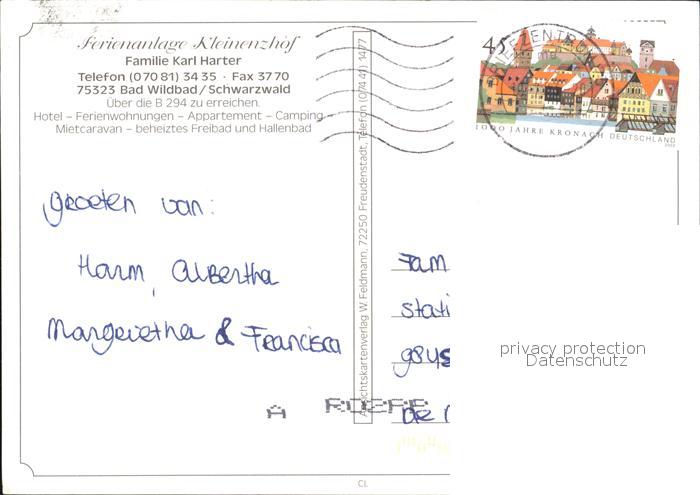 Ferienanlage Kleinenzhof
Familie Karl Harter
Telefon (0 70 81) 34 35 · Fax 37 70
75323 Bad Wildbad / Schwarzwald
Über die B 294 zu erreichen.
Hotel – Ferienwohnungen – Appartement – Camping –
Mietcaravan – beheiztes Freibad und Hallenbad
groeten van:
Harm, Albertha
Margeretha & Francisca
Ansichtskartenverlag W. Feldmann, 72250 Freudenstadt, Telefon (07441) 1472
45
1000 JAHRE KRONACH DEUTSCHLAND
Fam
stati
De
privacy protection
Datenschutz
A
CL